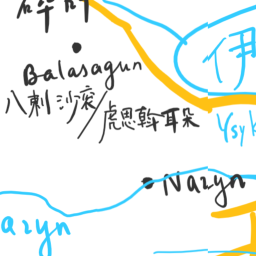 碎叶
Balasagun
八剌沙滚/虎思斡耳朵
伊
Ysyk
Naryn
Naryn